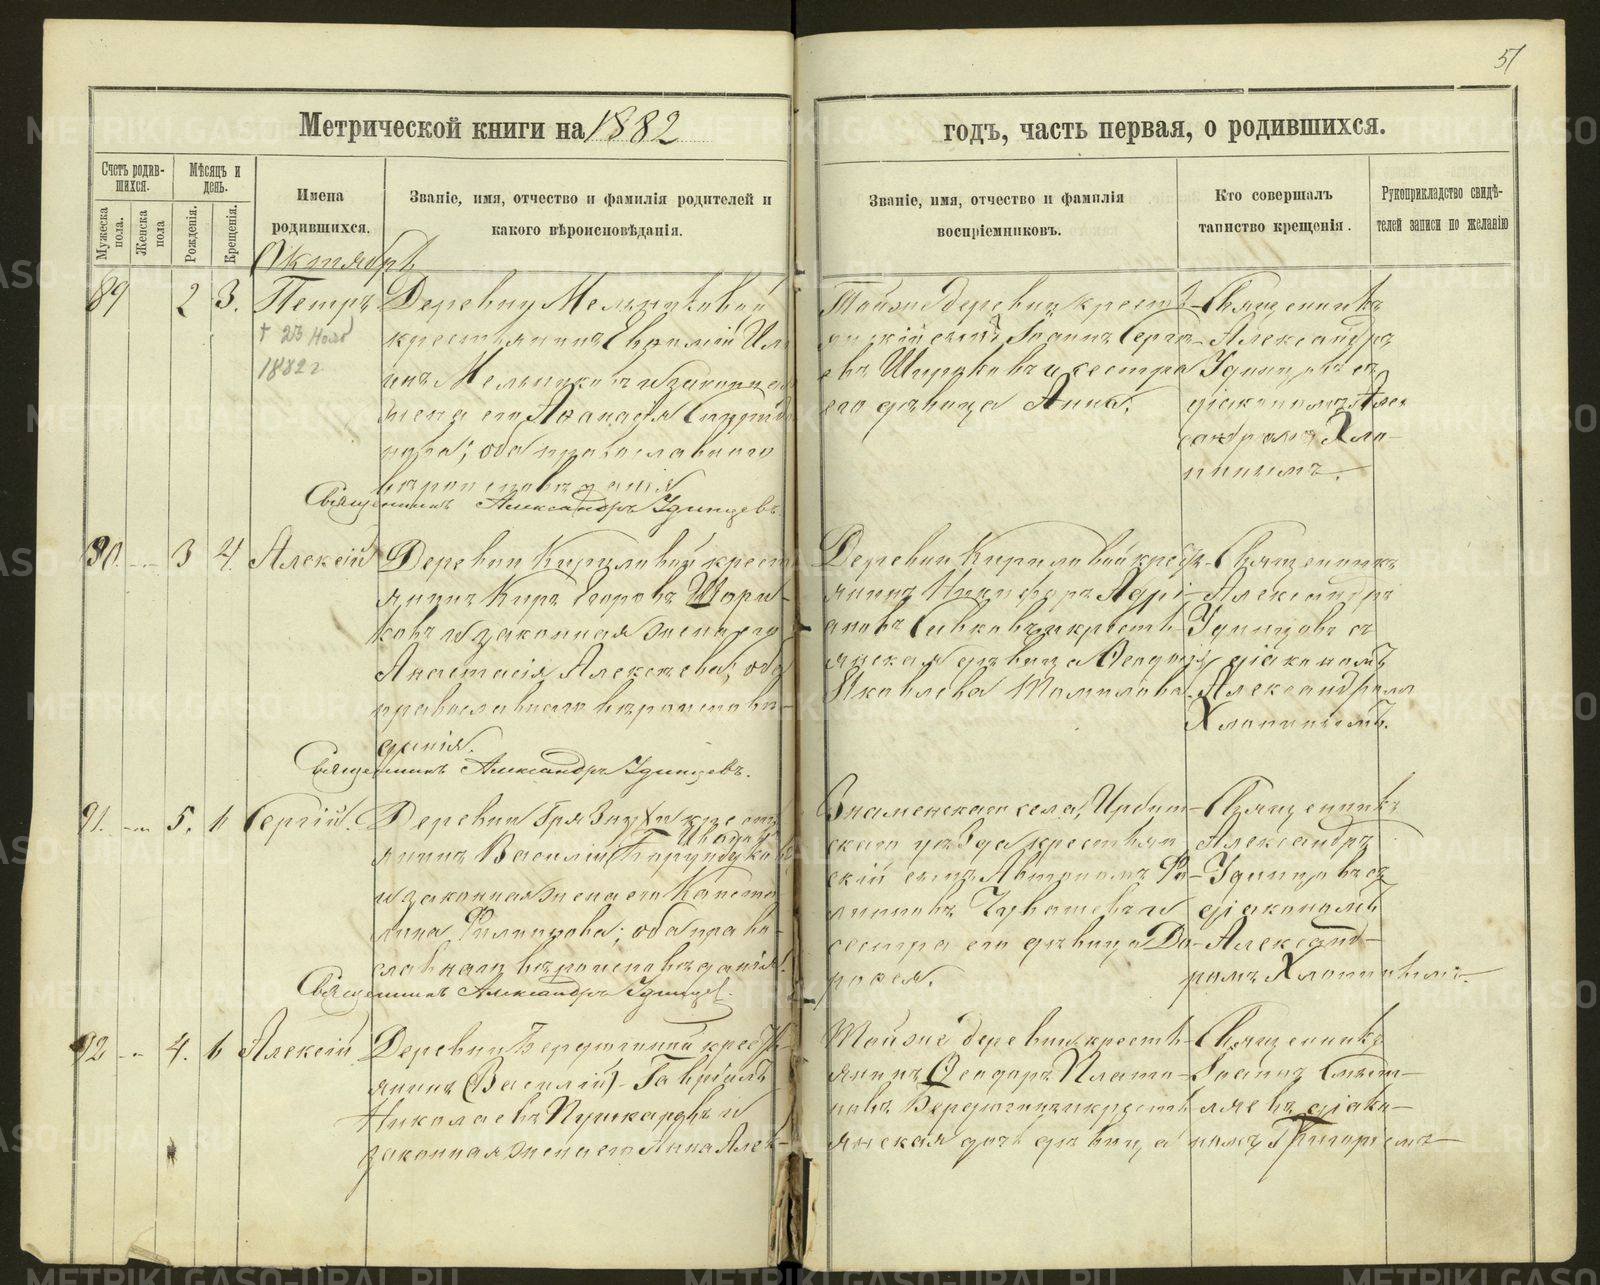 51
Метрической книги на 1882
годъ, часть первая, о родившихся.
Счетъ родившихся.
Мужеска пола.
Женска пола
Мѣсяцъ и день.
Рожденія.
Крещенія.
Имена родившихся.
Званіе, имя, отчество и фамилія родителей и
какого вѣроисповѣданія.
Званіе, имя, отчество и фамилія
воспріемниковъ.
Кто совершалъ
таинство крещенія.
Рукоприкладство свидѣ-
телей записи по желанію
Октябрь
89 2 3. Петръ
† 23 Нояб
1882 г
Деревни Мельниковой
крестьянинъ Евѳимій
инъ Мельниковъ и законная
жена его Аѳанасія
оба православнаго
вѣроисповѣданія
Священникъ Александръ Удинцевъ
Той же деревни крестья-
скій сынъ Іоаннъ Серге-
евъ Ширяковъ и сестра
его дѣвица Анна.
Священникъ
Александръ
Удинцовъ съ
діакономъ Алек
сандромъ Хло-
пинымъ.
90. 3 4. Алексій
Деревни Кириловой крест
янинъ Киръ Егоровъ Шори-
ковъ и законная жена его
Анастасія Алексѣева, оба
православнаго вѣроисповѣ-
данія.
Священникъ Александръ Удинцевъ.
Деревни Кириловой крест-
янинъ Никифоръ Адрі-
ановъ Сивковъ и кресть
янская дѣвица Ѳеодосія
Яковлева Томилова.
Священникъ
Александръ
Удинцовъ съ
діакономъ
Александромъ
Хлопинымъ.
91. 5. 6 Сергій.
Деревни Грязнухи крест
янинъ Василій
и законная жена его Капито
лина Филиппова; оба право-
славнаго вѣроисповѣданія.
Священникъ Александръ Удинцев.
Знаменскаго села, Ирбит-
скаго уѣзда крестьян
скій сынъ Автономъ Фи-
липповъ Чувашевъ и
сестра его дѣвица До-
роѳея.
Священникъ
Александръ
Удинцовъ съ
діакономъ
Александ-
ромъ Хлопинымъ.
92 4. 6 Алексій
Деревни Бердюгиной крест-
янинъ (Василій) Гавріилъ
Николаевъ Пушкаревъ и
законная жена его Анна Алек-
Той же деревни кресть-
янинъ Ѳеодоръ Плато-
новъ Бердюгинъ и кресть
янская дочь дѣвица
Священникъ
Іоаннъ Смѣт-
ляевъ діако-
номъ Григоріемъ